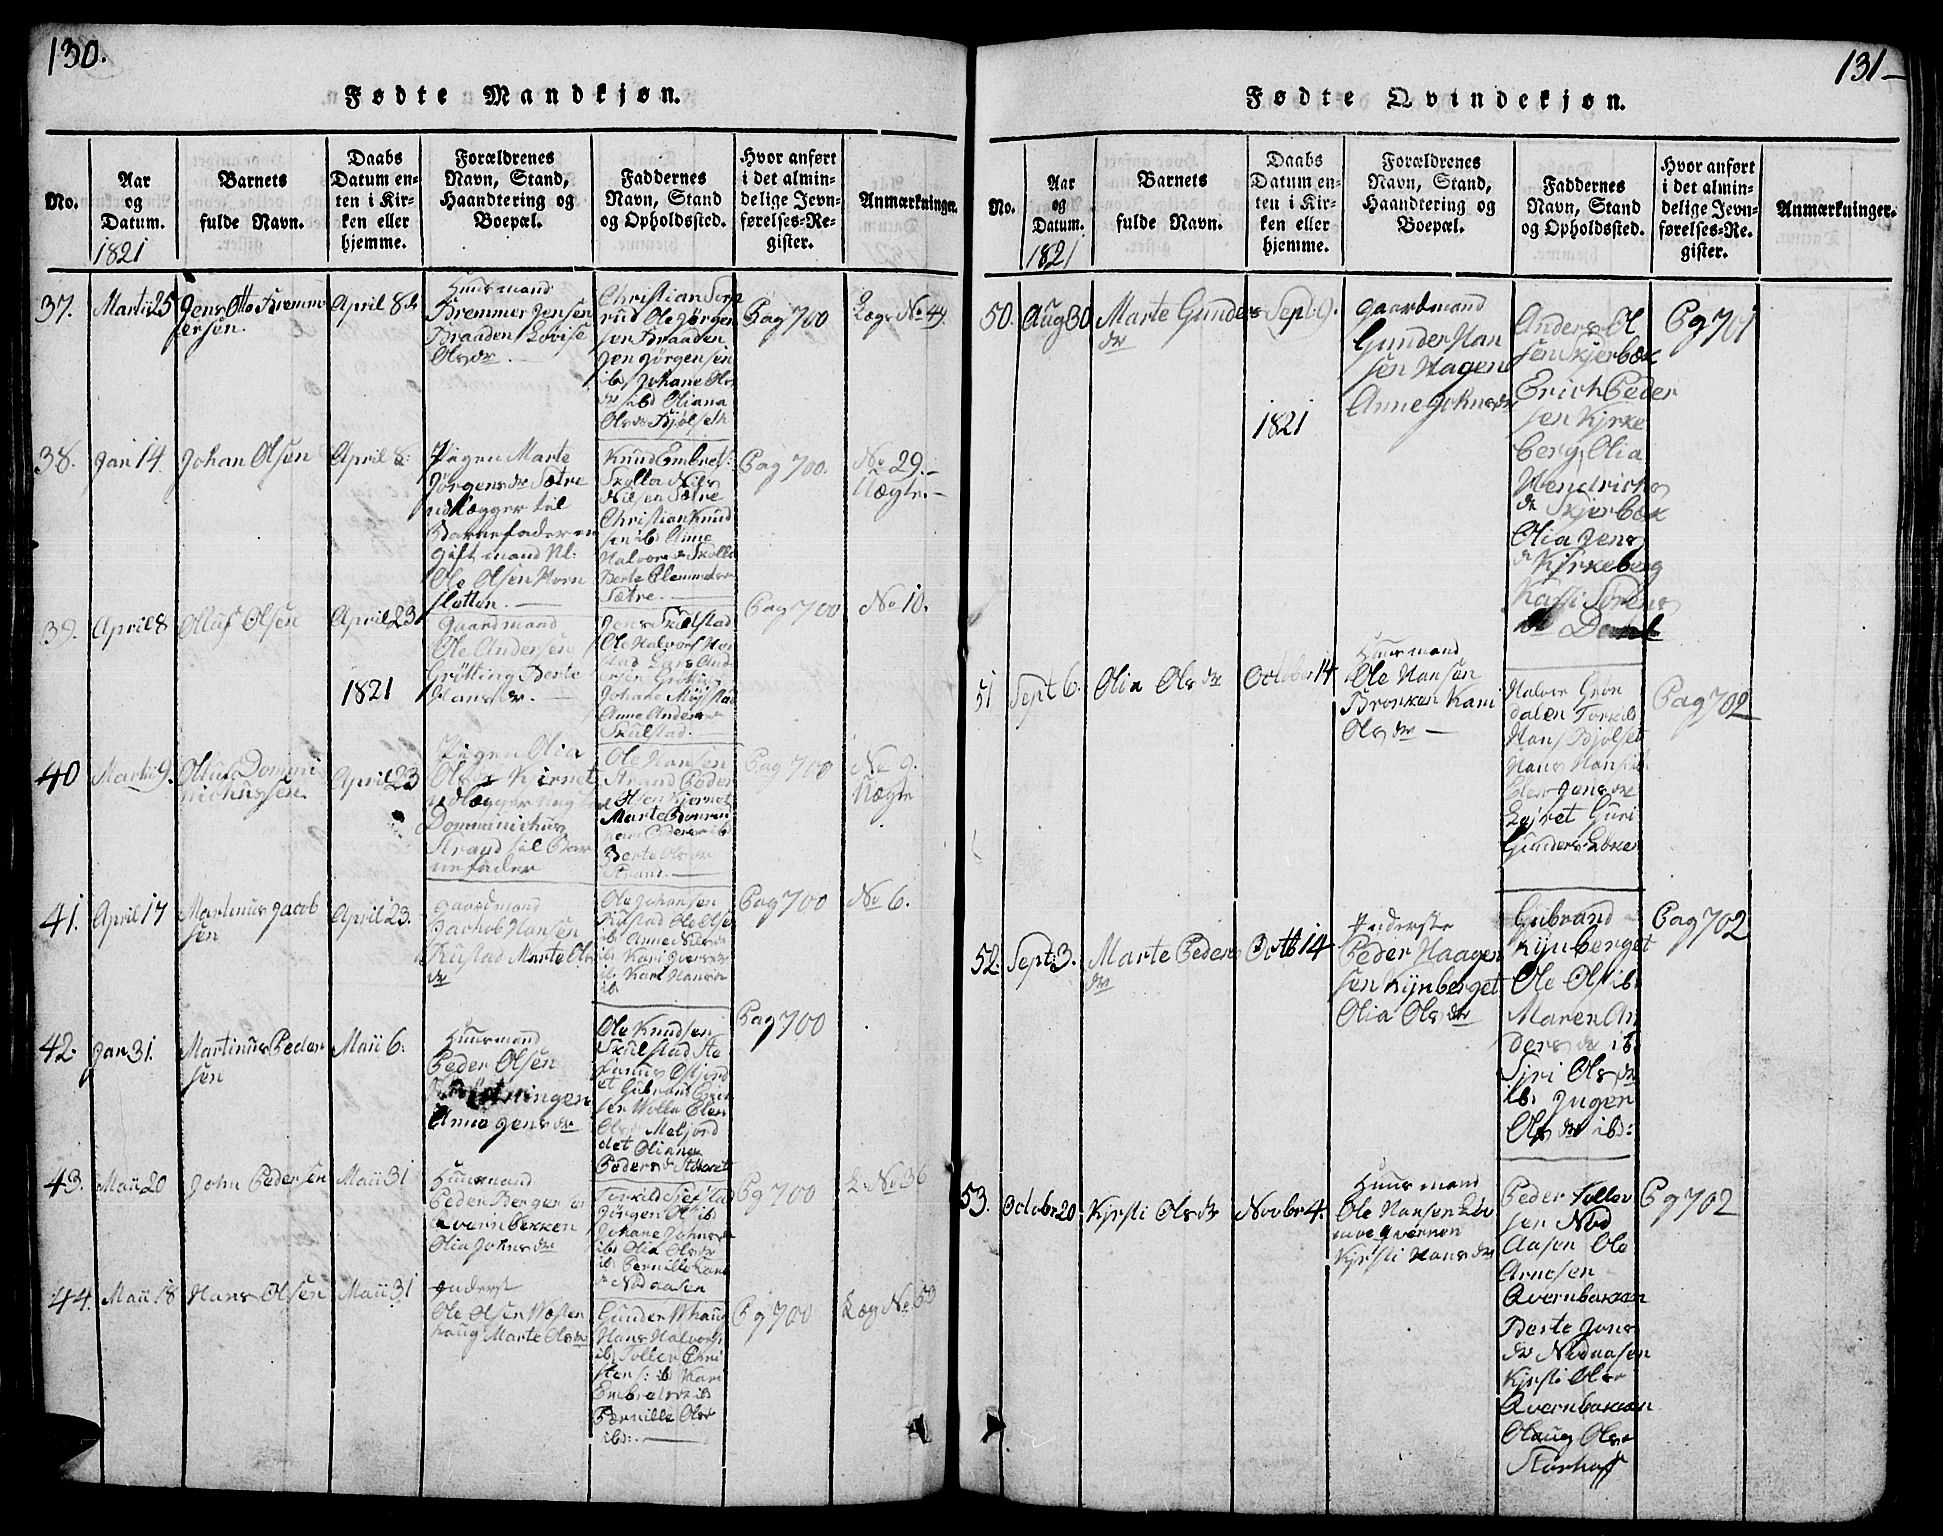 130.
Fødte Mandkjøn.
No.
Aar
og
Datum.
1821
Barnets
fulde Navn.
Daabs
Datum en-
ten i Kir-
ken eller
hjemme.
Forældrenes
Navn, Stand,
Haandtering og
Boepæl.
Faddernes
Navn, Stand
og Opholdssted.
Hvor anført
i det almin-
delige Jevn-
førelses-Re-
gister.
Anmærkninger.
37.
Martii 25
Jens Otto Bremmer
ersen.
April 8de
Huusmand
Bremmer Jensen
Braaden Lovise
Olsdr.
Christian Sorp
rud Ole Jørgen
sen Braaden
Jon Jørgensen
ibd Johane Ols
dr ibd Oliana
Olsdr Kjølseth
Pag 700
Læg No 49.
38.
Jan 14.
Johan Olsen
April 8.
Pigen Marte
Jørgensdr Sætre
udlægger til
Barnefader en
gift mand Nl:
Ole Olsen Horn
sletten.
Knud Embrets:
Skolla Nils
Nilsen Sætre
Christian Knud
sen ibd Anne
Halvorsdr Skolla
Berte Clemmetsdr
Sætre.
Pag 700.
No 29.
Nægte.
39.
April 8
Olluf Olsen
April 23
1821
Gaardmand
Ole Andersen
Grøtting Berte
Hansdr.
Jens Skulstad
Ole Halvors
Lars And
ersen Grøtting
Johane
Anne Anders
Skulstad.
Pag 700
No 10.
40
Martii 9.
Olluf Dommi
nichussen
April 23
Pigen Olia
Olsdr Kjernet
udlægger
Domminichus
Strand til Bar
nefader
Ole Hansen
Strand Peder
Olsen Kjernet
Marte
Pedersdr ibd
Berte Olsdr
Strand.
Pag 700
No 9.
Nægte
41.
April 17
Martinus Jacob
sen
April 23.
Gaardmand
Jachob Hansen
Rustad Marte Ols
dr
Ole Johansen
Rustad Ole Olse
ib Anne Nilsdr
ib Kari Iversdr
ib Kari Hansdr
ib
Pag 700
No 6.
42.
Jan 31.
Martinus Peder
sen
Maii 6.
Huusmand
Peder Olsen
Anne Jensdr
Ole Knudsen
Skulstad Ste
et Gubrand Eric
sen Wolla Elen
Ols Meljord
det Oliane
Pedersdr
Pag 700
43.
Maii 20
John Pedersen
Maii 31
Huusmand
Peder Bergersen
Qvernbekken
Olia Johnsdr
Torkild
Jørgen Ols ib
Johane Johnsdr
ib Olia Olsdr
ib Pernille Hans
dr Nidaasen
Pg 700
L: No 36
44.
Maii 18
Hans Olsen
Maii 31
Inderst
Ole Olsen Wæsten
haug Marte Olsdr
Gunder Whaug
Hans Halvors
ib Toller Chri
stens: ib Kari
Embretsdr ib
Pernille Olsdr
ib:
Pg 700
Læg No 53
131
Fødte Qvindekjøn.
No.
Aar
og
Datum.
1821
Barnets
fulde Navn.
Daabs
Datum en-
ten i Kir-
ken eller
hjemme.
Forældrenes
Navn, Stand,
Haandtering og
Boepæl.
Faddernes
Navn, Stand
og Opholdssted.
Hvor anført
i det almin-
delige Jevn-
førelses-Re-
gister.
Anmærkninger.
50.
Aug 30
Marte Gunders
dr
Sept: 9.
1821
Gaardmand
Gunder Han
sen Hagen
Anne Johnsdr
Anders Ol
sen Skjerbæk
Erich Peder
sen Kirke
berg Olia
Hendrichs
dr Skjerbæk
Olia Jens
dr Kirkeberg
Kassi Sørens
Pg 701
51
Sept 6.
Olia Olsdr
October 14
Huusmand
Ole Hansen
Bronken Kari
Olsdr
Halvor Grøn
dalen Torkild
Hans Kjølset
Hans Hansen
Elen Jensdr
Lejret Guri
Gunders
Pag 702
52.
Sept: 3.
Marte Peders
dr
Octb 14
Inderste
Peder Haagen
sen Kynberget
Olia Olsdr
Gubrand
Kynberget
Ole Ols ib
Maren An
dersdr ib
Siri Olsdr
ib: Inger
Olsdr ib:
Pag 702
53.
October 20
Kjersti Olsdr
Novbr 4.
Huusmand
Ole Hansen
Qvernen
Kjersti Hansdr
Peder Tollev
sen Nid
Aasen Ole
Arnesen
Qvernbakken
Berte Jons
dr Nidaasen
Kjersti Olsdr
Qvernbakken
Olaug Olsdr
Storhoff
Pg 702